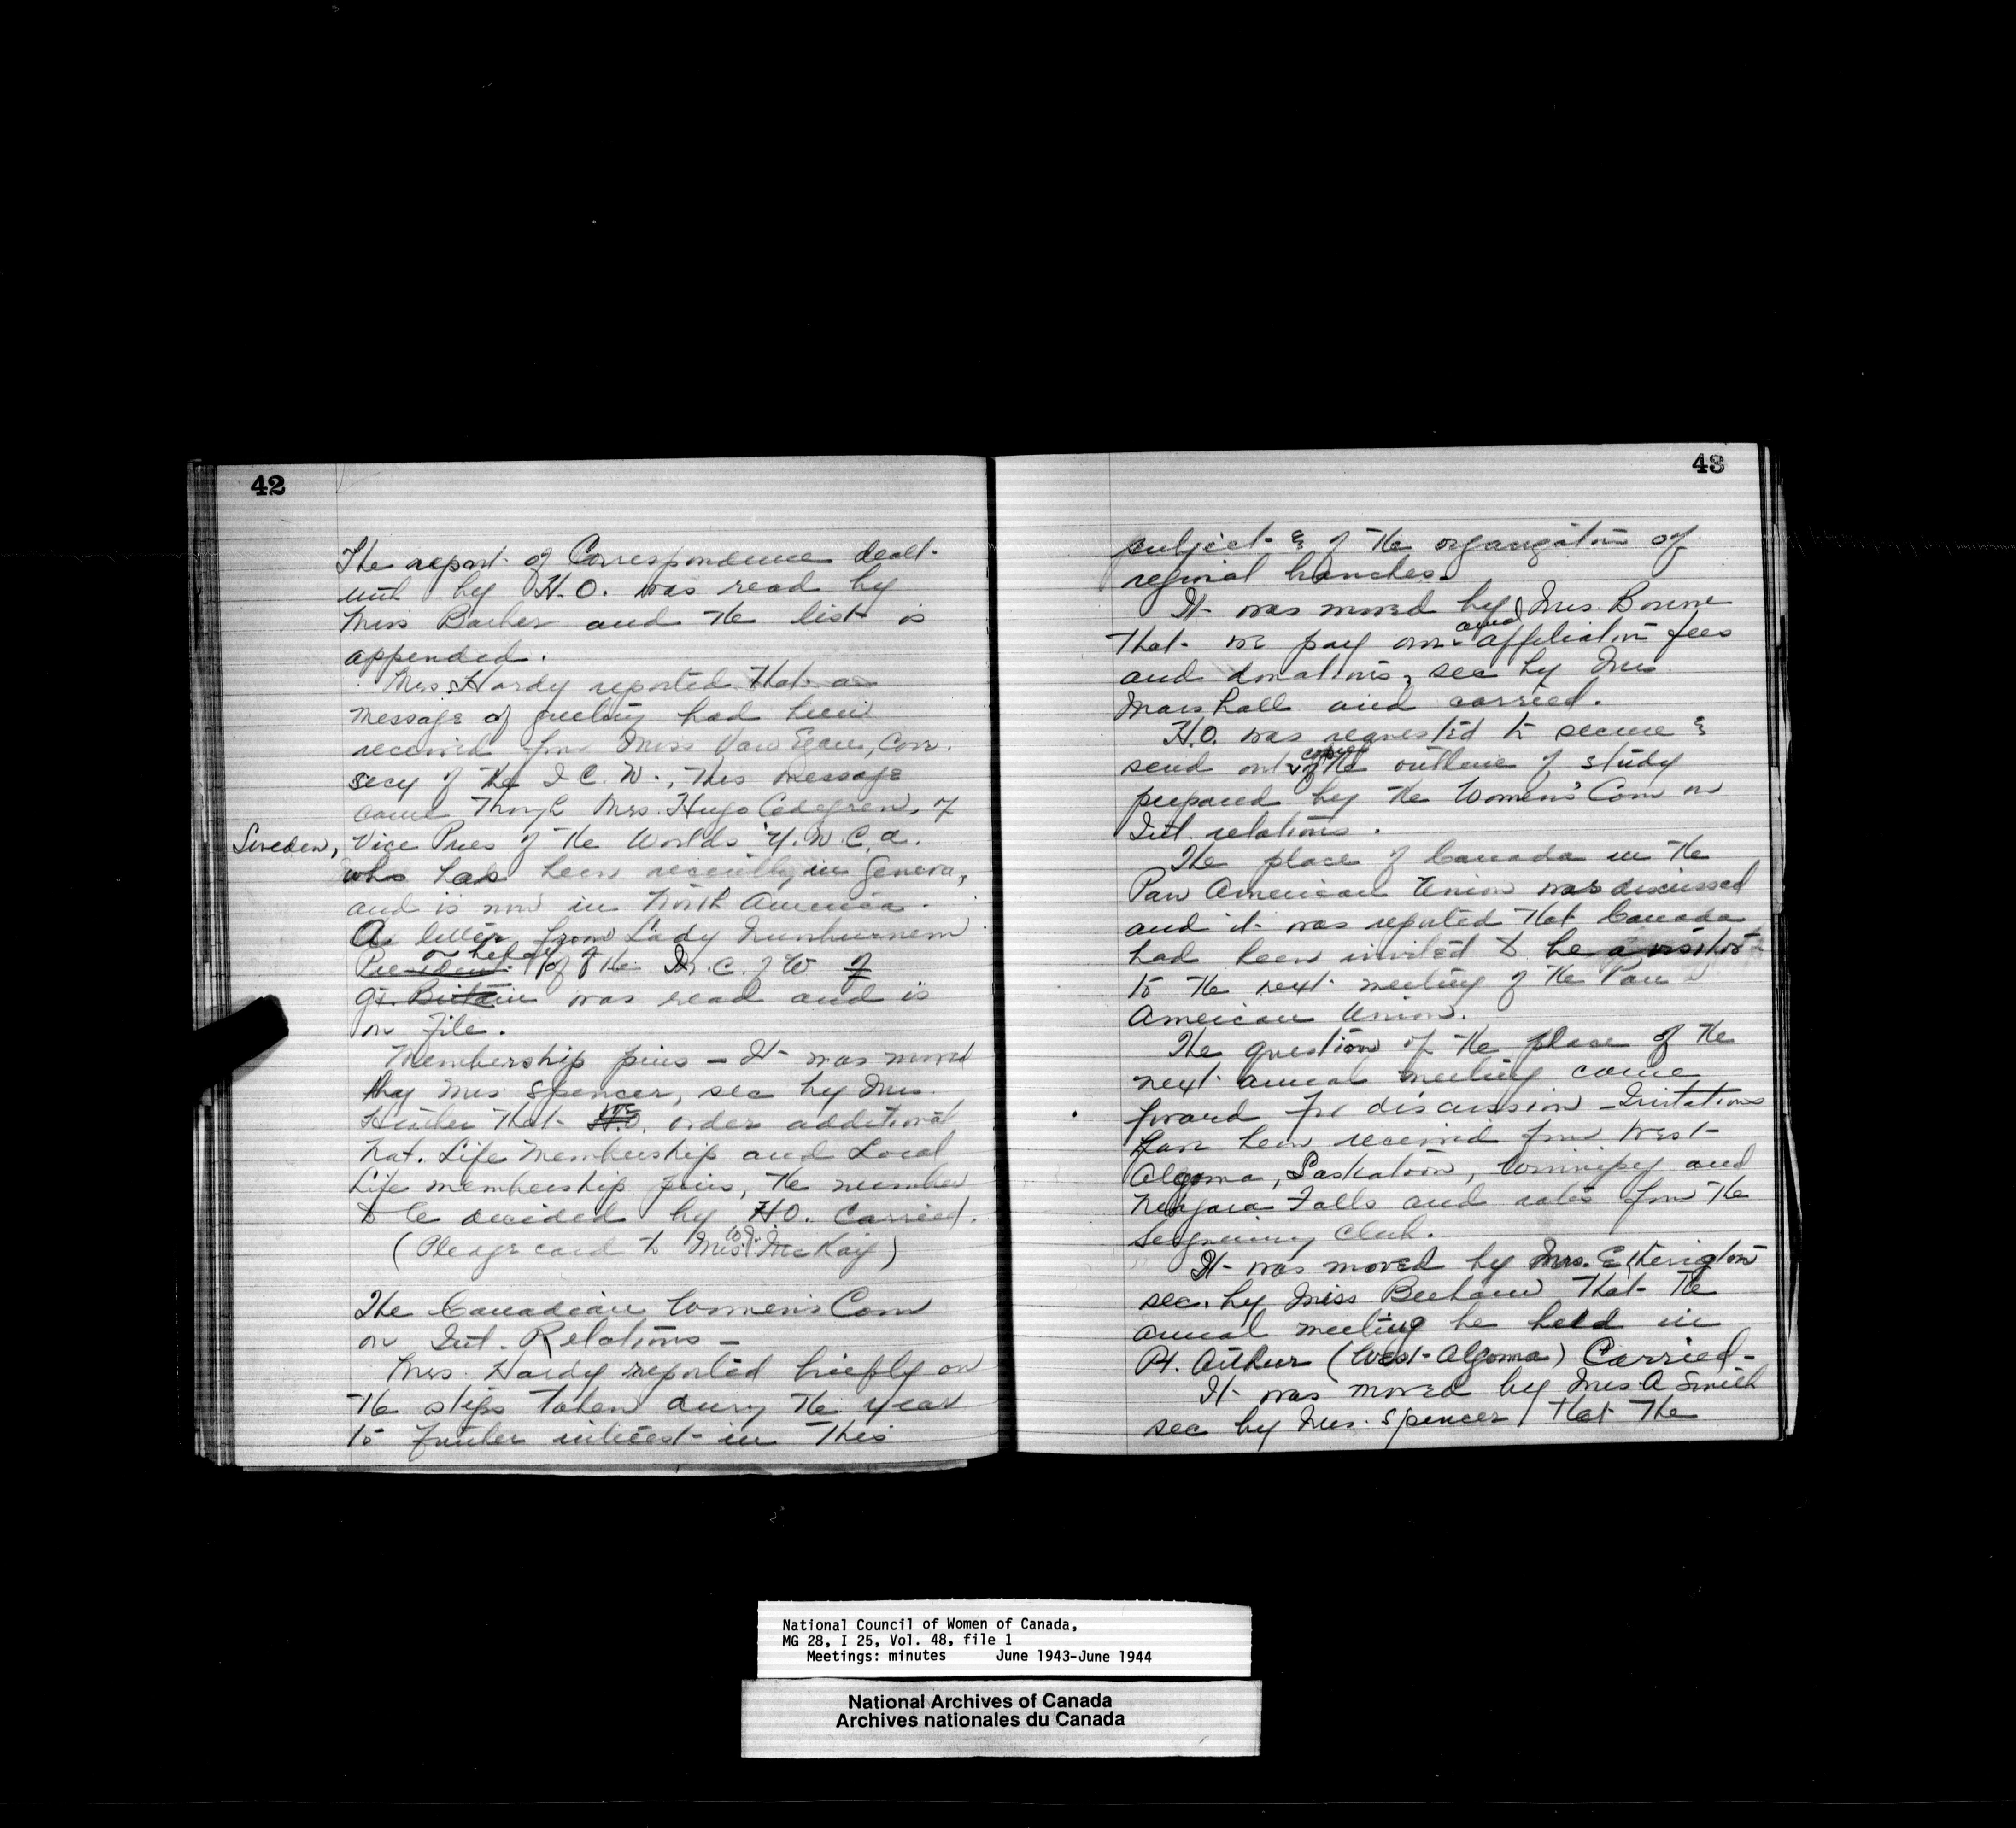 42
The report of Correspondence dealt
with by H.O. was read by
Miss Barber and the list is
appended.
Mrs. Hardy reported that a
message of greeting had been
received from Miss Van Eghen, Corr.
secy of the I C. W., this message
came through Mrs. Hugo Cedegren, of
Sweden, Vice Pres of the Worlds Y.W.C.A.
who has been recently in Geneva,
and is now in North America.
A letter from Lady Nunburnholme
on behalf of
President of the N.C. of W of
Gt. Britain was read and is
on file.
Membership pins - It was moved
by Mrs Spencer, sec by Mrs.
that H.O. order additional
Nat. Life Membership and Local
Life membership pins, the number
to be decided by H.O. Carried.
(Pledge card to Mrs. McKay)
The Canadian Women's Com
on Int. Relations -
Mrs. Hardy reported briefly on
the steps taken during the year
to further interest in this
43
subject & of the organization of
regional branches.
It was moved by Mrs Bowne
annual
that we pay our affiliation fees
and donations, sec by Mrs
Marshall and carried.
H.O. was requested to secure &
copies
send out of the outline of study
prepared by the Women's Com on
Int. relations.
The place of Canada in the
Pan American Union was discussed
and it was reported that Canada
had been invited to be a visitor
to the next meeting of the Pan
American Union.
The question of the place of the
next annual meeting came
forward for discussion - Invitations
have been received from West
Algoma, Saskatoon, Winnipeg and
Niagara Falls and rates from the
Seigniory Club.
It was moved by Mrs. Etherington
sec. by Miss that the
annual meeting be held in
Pt. Arthur (West-Algoma) Carried -
It was moved by Mrs. A Smith
sec by Mrs. Spencer that the
National Council of Women of Canada,
MG 28, I 25, Vol. 48, file 1
Meetings: minutes June 1943-June 1944
National Archives of Canada
Archives nationales du Canada